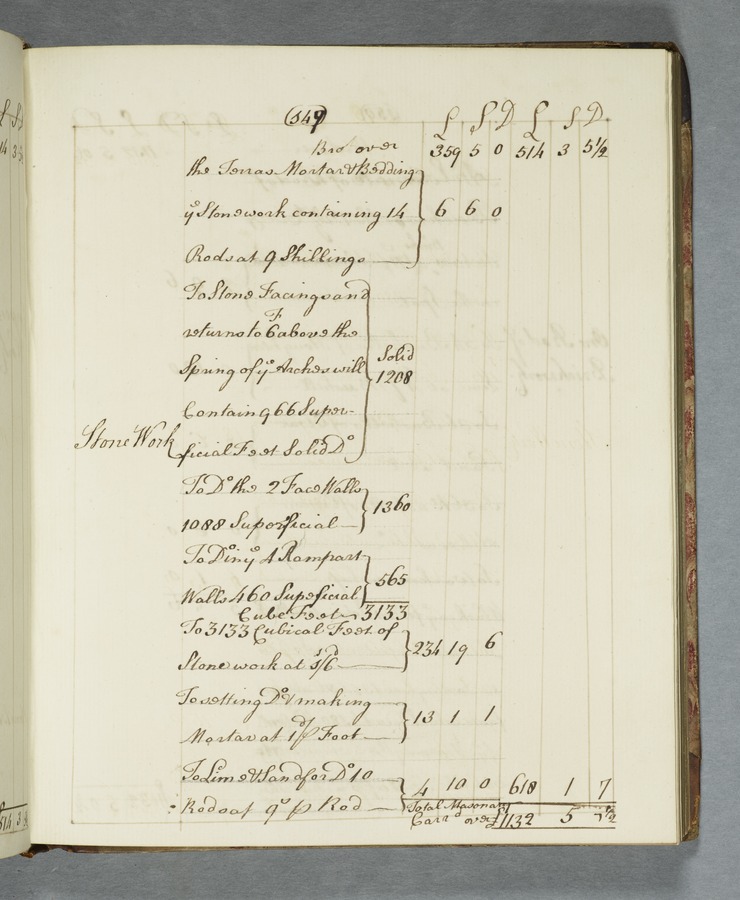 (549)
L S D L S D
Bro.t over 359 5 0 514 3 5½
the Terras Mortar & Bedding
yͤ Stonework containing 14 } 6 6 0
Rods at 9 Shillings
To Stone Facings and
returns to 6 F above the
Spring of yͤ Arches will } Solid 1208
Contain 966 Super-
Stone Work { ficial Feet Solid Dº
To Dº the 2 Face Walls } 1360
1088 Superficial
To Dº in yͤ 4 Rampart
Walls 460 Supeficial } 565
Cube Feet 3133
To 3133 Cubical Feet of
Stone work at 1s/6d } 234 19 6
To setting Dº & making
Mortar at 1d/ p Foot } 13 1 1
To Lime & Sand for Dº 10
Rods at 9s p Rod } 4 10 0 618 1 7
Total Masonary
Carrd over £ 1132 5 7½
L S
14 3
514 3